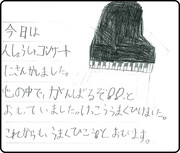 今日は
コンクート
にさんかしました。
心の中で、がんばるぞと
おもっていました。けっこううまくひけました。
これからもうまくひこうとおもいます。